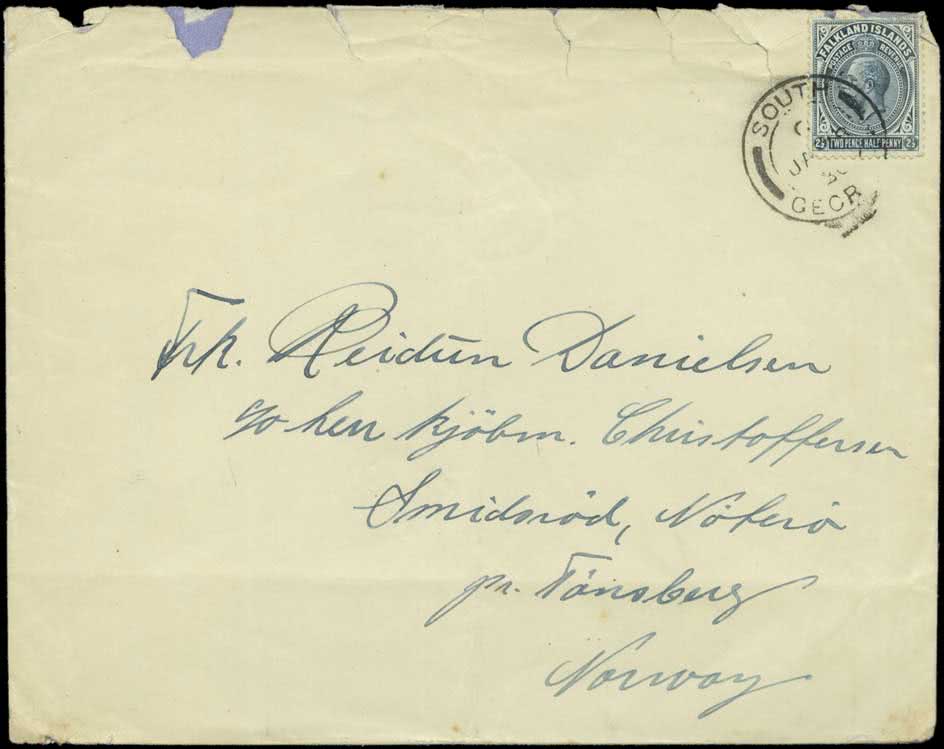 FALKLAND ISLANDS
POSTAGE REVENUE
2½ TWO PENCE HALF PENNY 2½
SOUTH
GEOR
Frk. Reidun Danielsen
c/o herr kjöbm. Christoffersen
Smidsröd, Nöterö
pr. Tönsberg
Norway